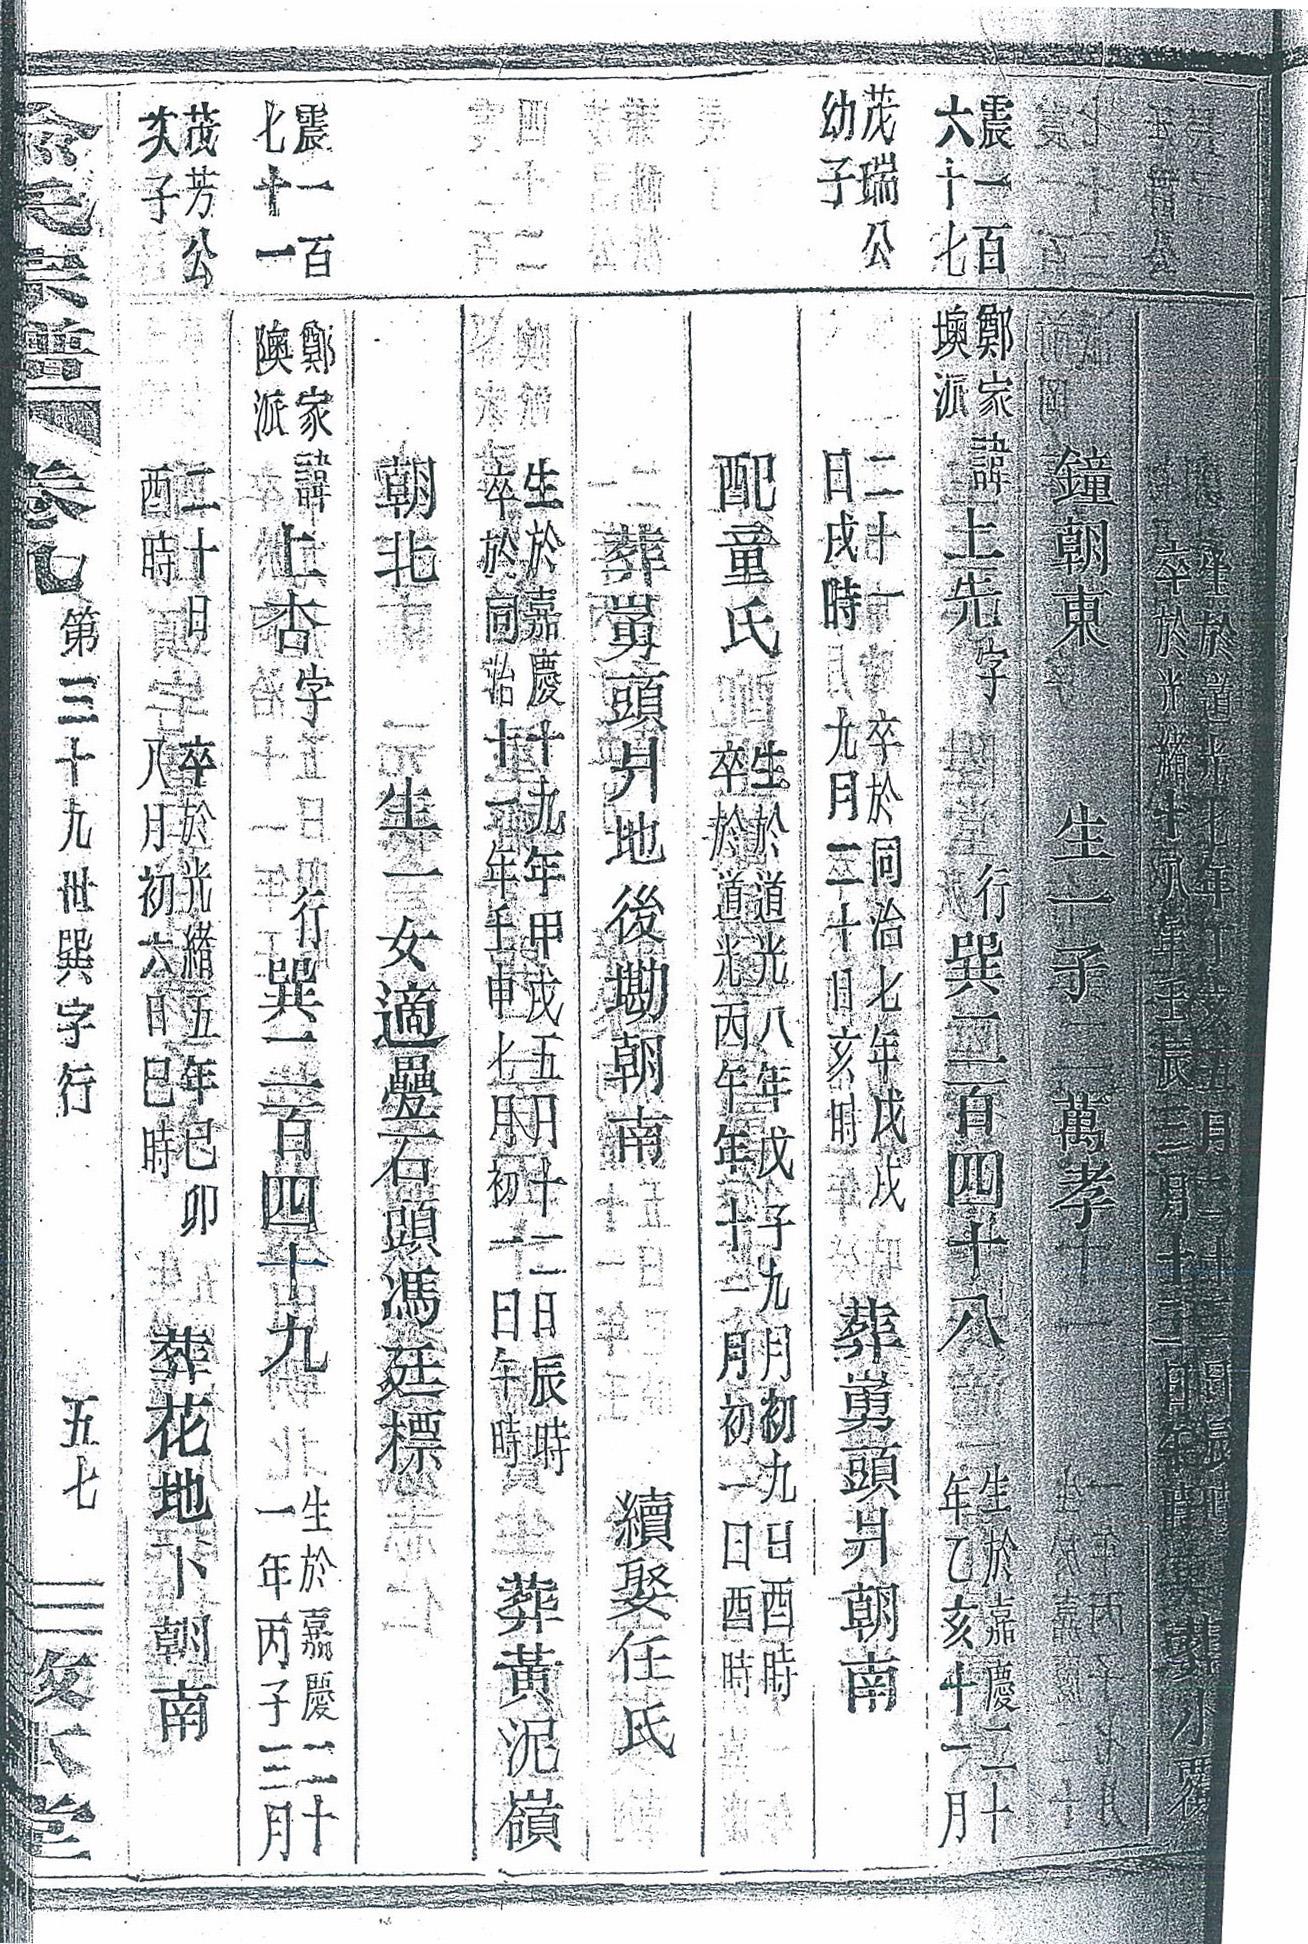 生於道光七年丁亥
卒於光緒十八年壬辰三月十
鐘朝東 生一子 萬孝
震一百
六十七
鄭家
塽派
諱上先字 行巽一二百四十八
生於嘉慶二十
年乙亥十一月
茂瑞公
幼子
二十一
日戌時
卒於同治七年戊戌
九月二十日亥時
葬嵏頭爿朝南
配童氏
生於道光八年戊子九月初九日酉時
卒於道光丙午年十二月初一日酉時
葬嵏頭爿地後墈朝南 續娶任氏
生於嘉慶十九年甲戌五月十二日辰時
卒於同治十一年壬申七月初一日午時
葬黃泥嶺
朝北 生一女適疊石頭馮廷標
震一百
七十一
鄭家
塽派
諱上杏字 行巽一二百四十九
生於嘉慶二十
一年丙子三月
茂芳公
次子
二十日
酉時
卒於光緒五年己卯
八月初六日巳時
葬花地卜朝南
俞氏宗譜 卷九 第三十九世巽字行 五七